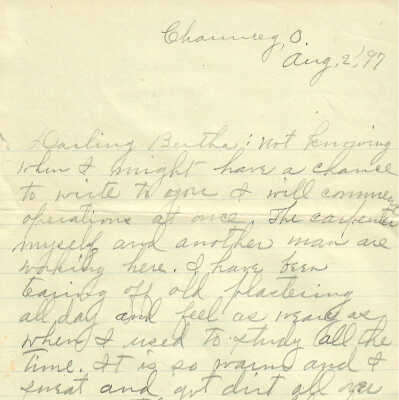 Chauncey, O.
Aug. 2, '97
Darling Bertha: Not knowing
when I might have a chance
to write to you I will commence
operations at once. The carpenter
myself and another man are
working here. I have been
tearing off old plastering
all day and feel as weary as
when I used to study all the
time. It is so warm and I
sweat and got dirt all over